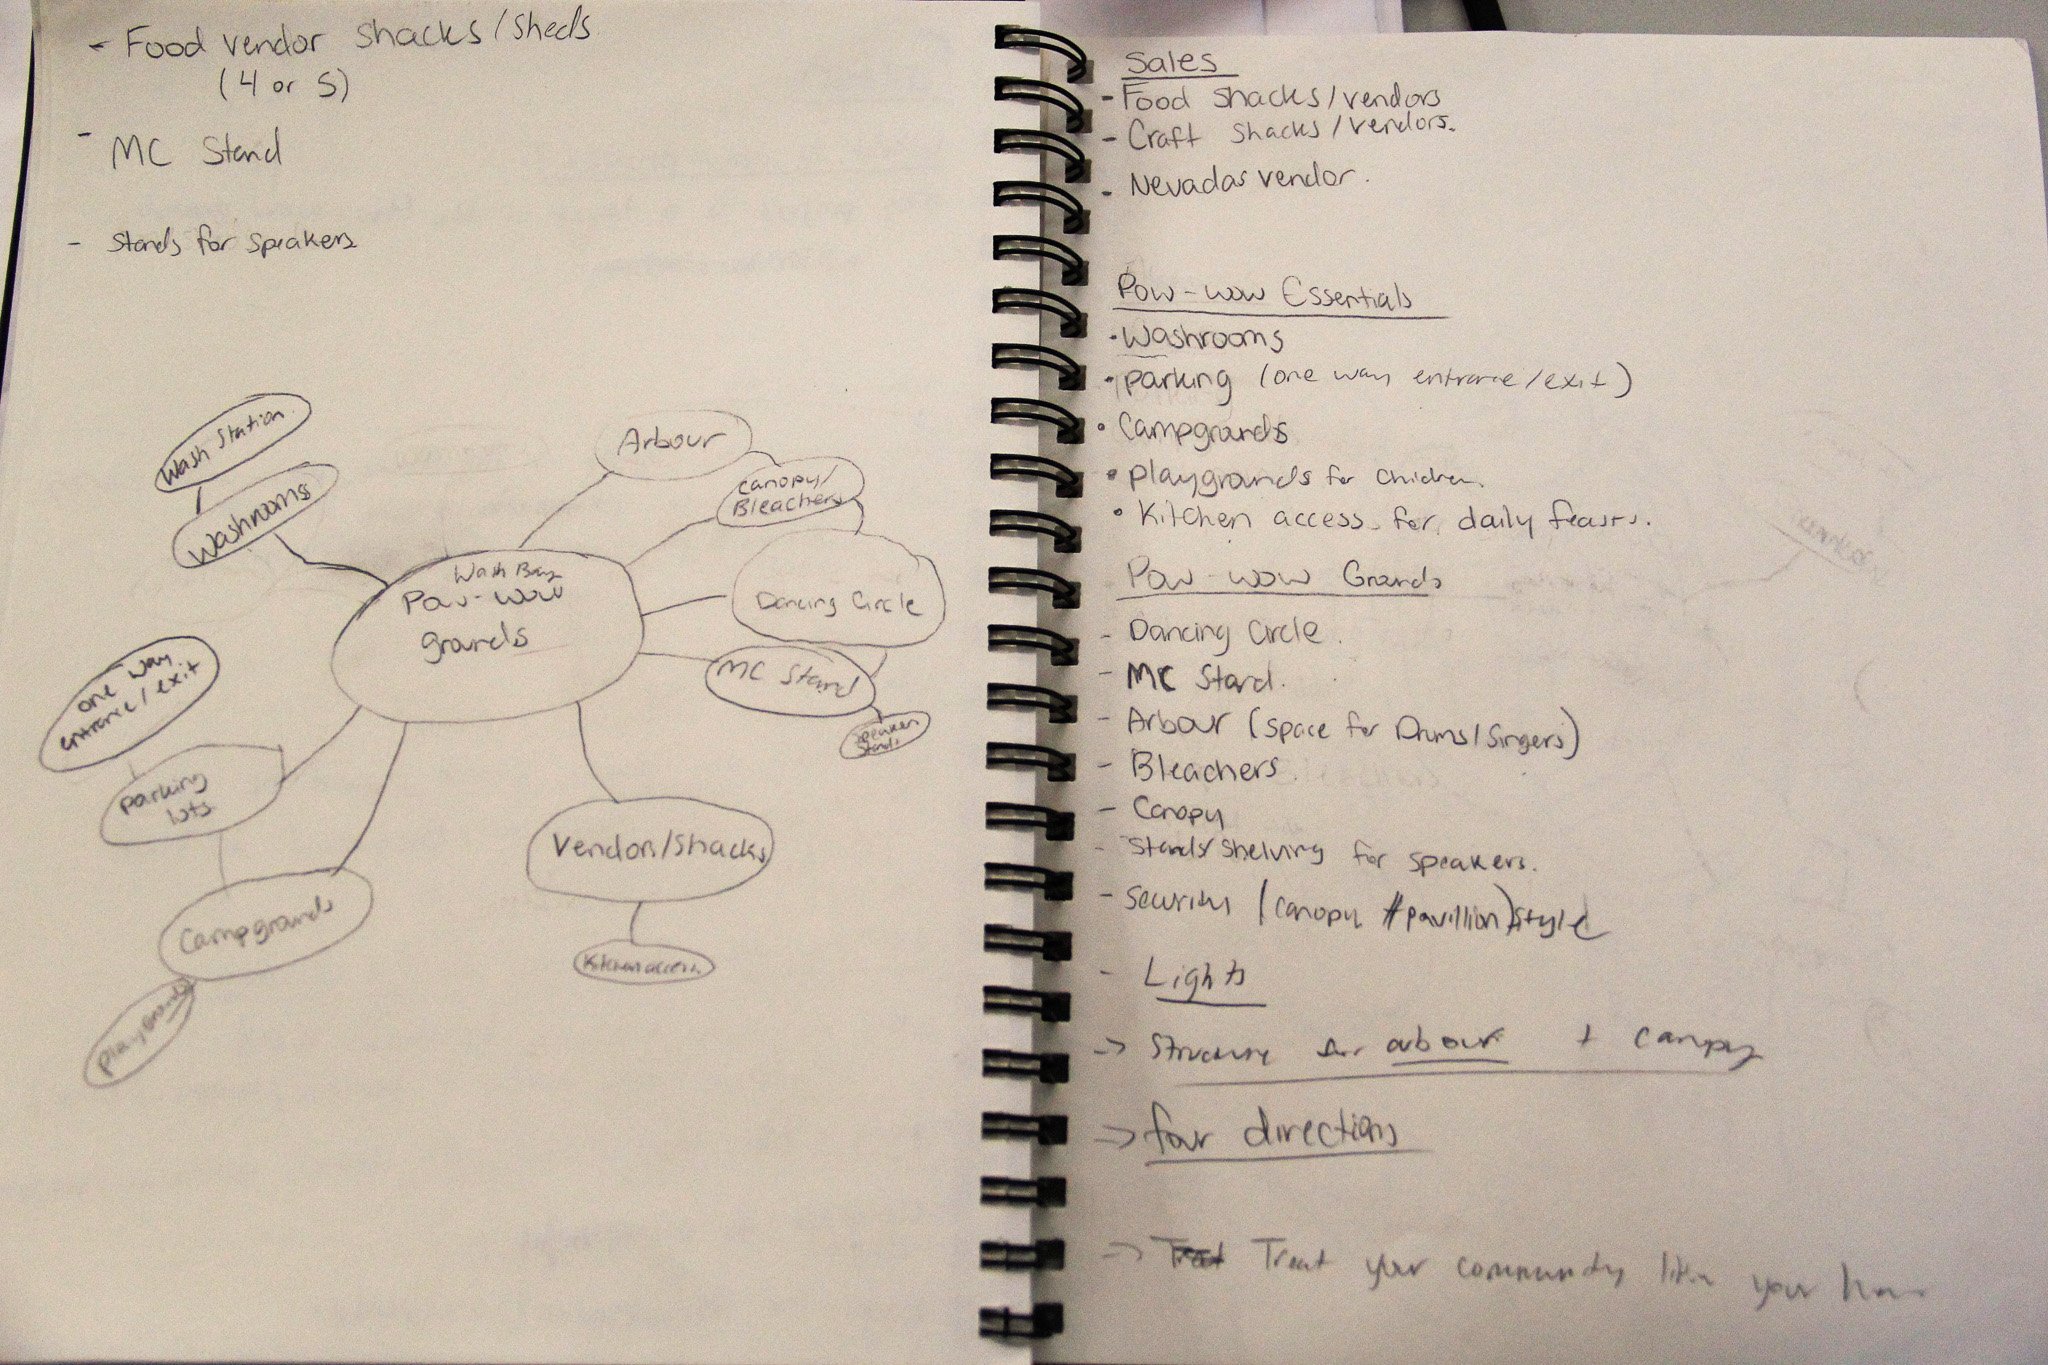 - Food vendor shacks/sheds
(4 or 5)
- MC Stand
- Stands for speakers
Wash Station
Washrooms
Arbour
Canopy/
Bleachers
Wash Bay
Pow-wow
grounds
Dancing Circle
MC Stand
Speaker
Stands
one way
entrance/exit
Parking
lots
Vendors/Shacks
Campgrounds
Kitchen access
Playgrounds
Sales
- Food shacks/vendors
- Craft shacks/vendors.
- Nevadas vendor.
Pow-wow Essentials
• Washrooms
• parking (one way entrance/exit)
• Campgrounds
• playgrounds for children.
• Kitchen access for daily feasts.
Pow-wow Grounds
- Dancing Circle.
- MC Stand.
- Arbour (space for Drums/Singers)
- Bleachers.
- Canopy
- Stands/shelving for speakers.
- Security (canopy pavillion) style
- Lights
-> Structure for arbour + canopy
-> four directions
-> Treat your community like your